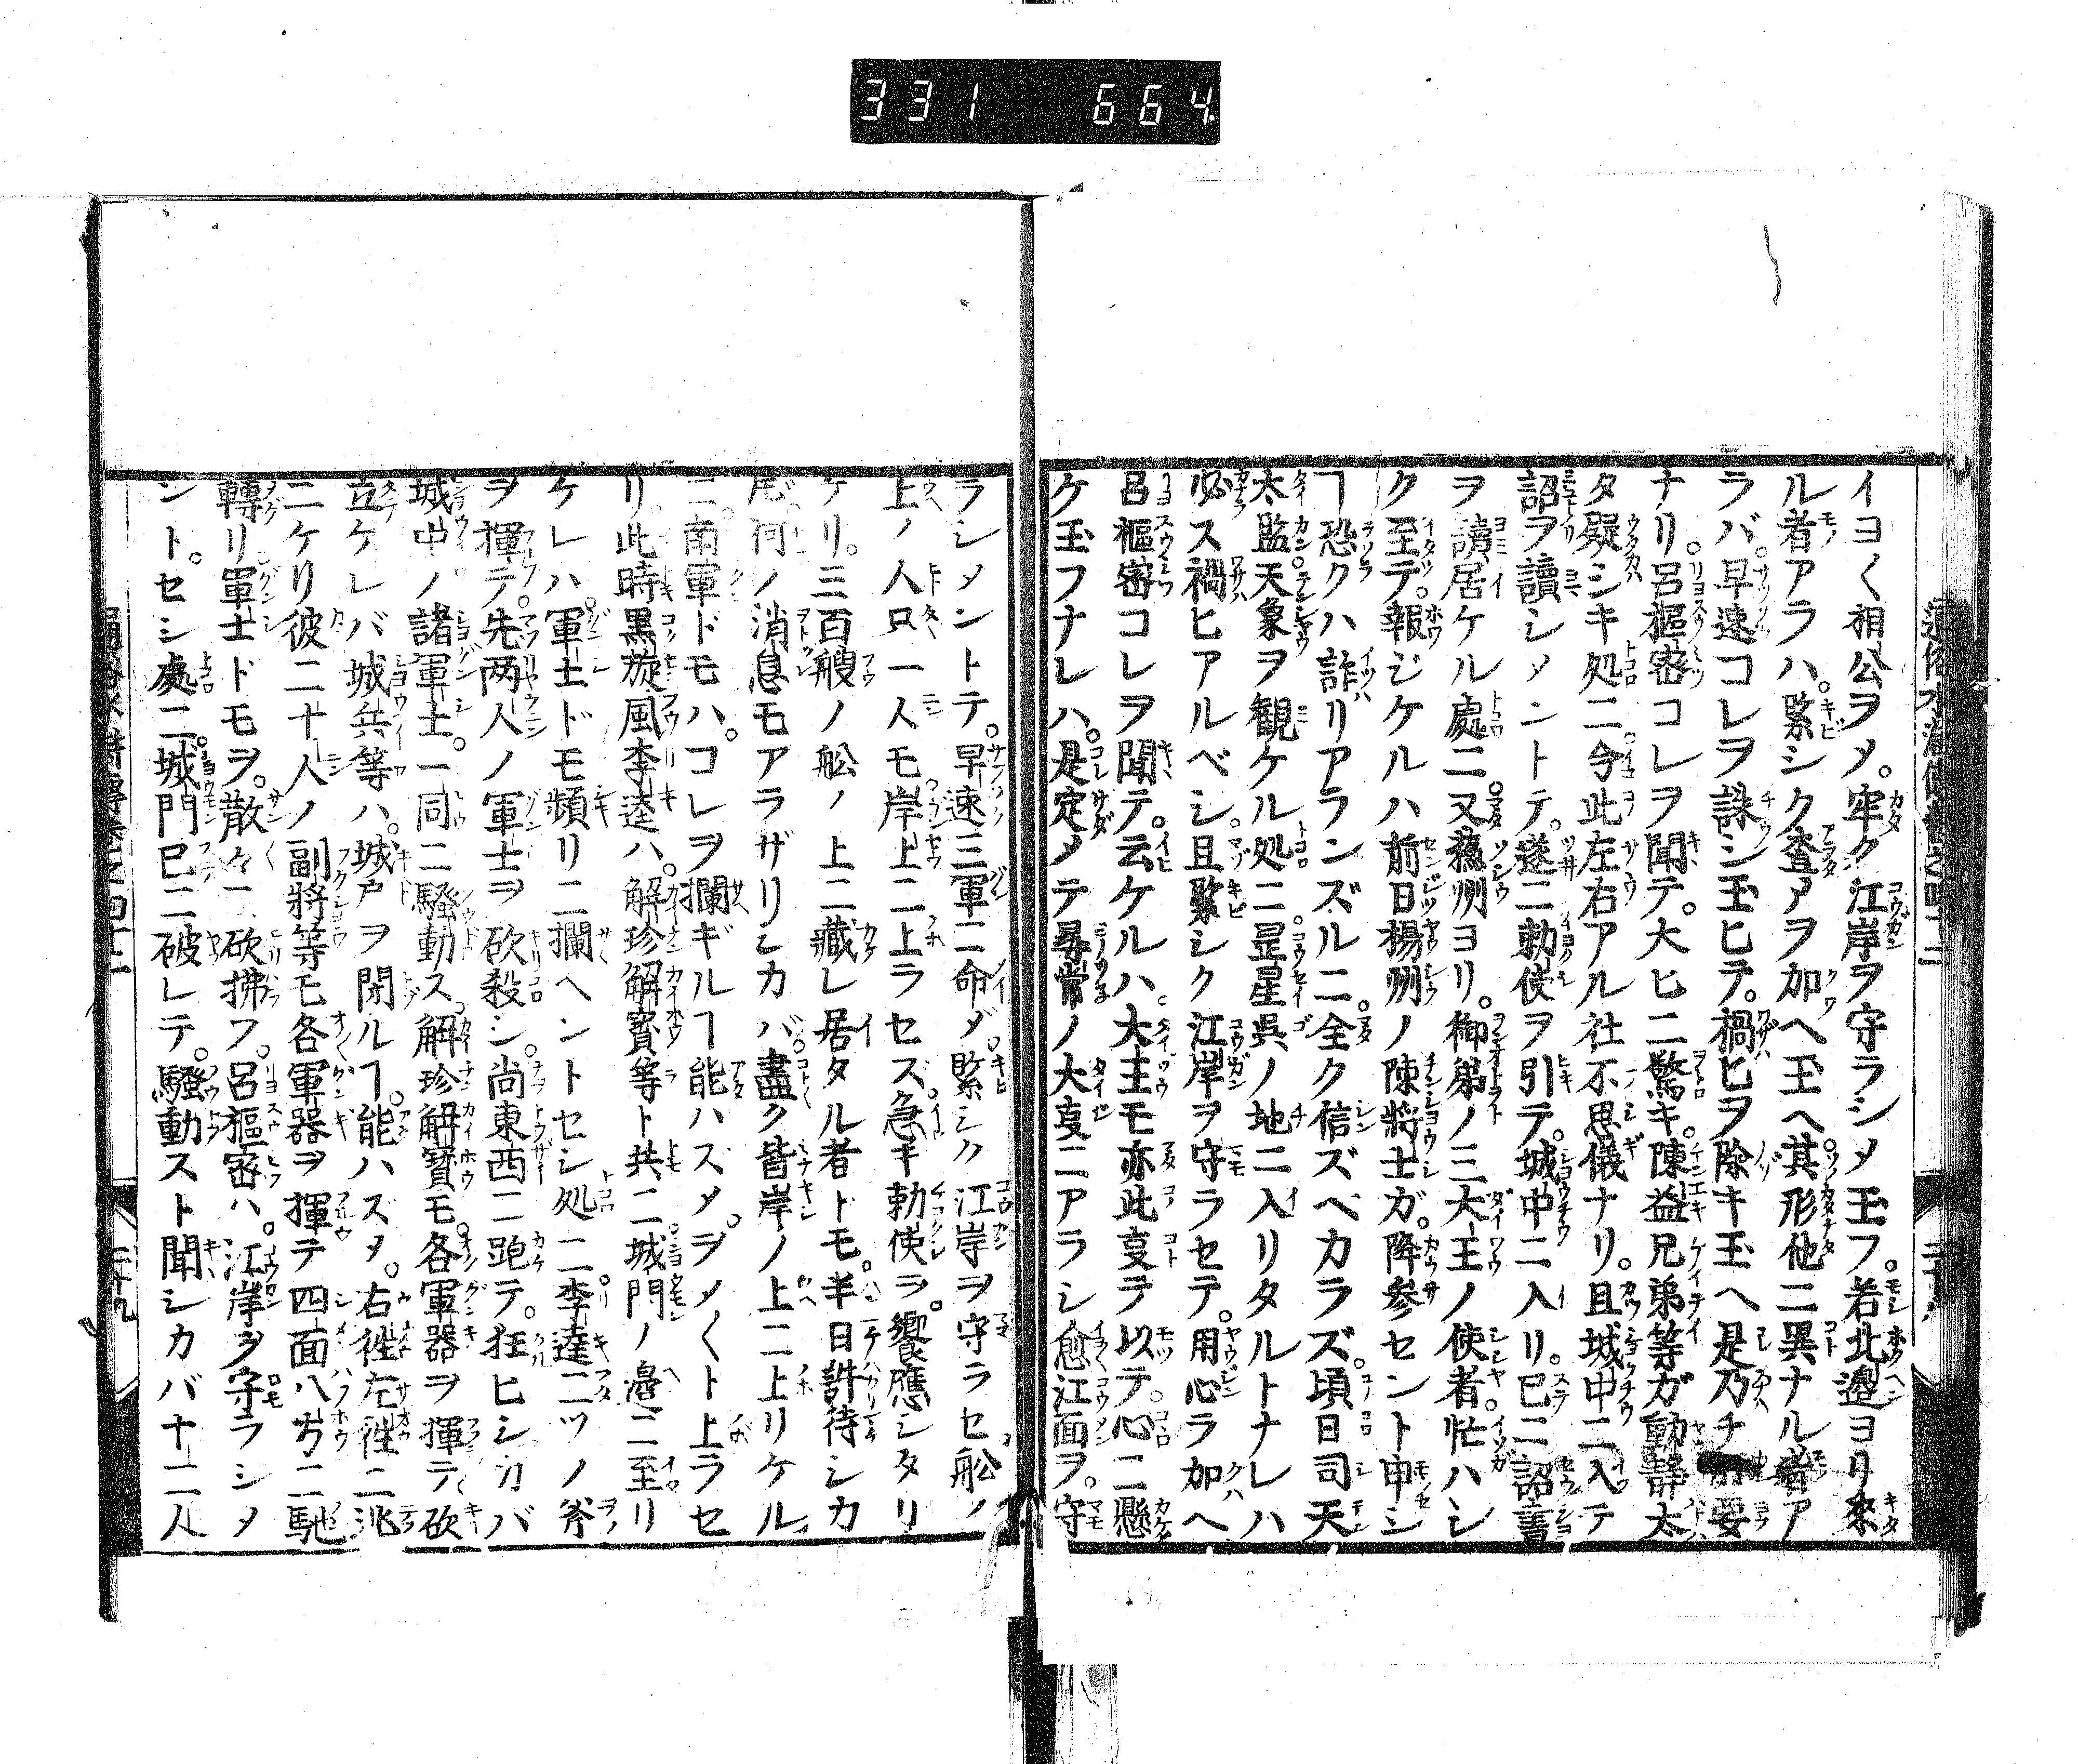 331 664
イヨ〱相公ヲメ。牢ク江岸ヲ守ラシメ玉フ。若北邉ヨリ來
ル者アラハ。緊シク査アヲ加ヘ玉ヘ。其形他ニ異ナル者ア
ラバ。早速コレヲ誅シ玉ヒテ。禍ヒヲ除キ玉ヘ是乃チ肝要
ナリ。呂樞密コレヲ聞テ。大ヒニ驚キ。陳益兄弟等ガ動静太
タ疑シキ処ニ。今此左右アル社不思儀ナリ。且城中ニ入テ
詔ヲ讀シメントテ。遂ニ勅使ヲ引テ。城中ニ入リ。已ニ詔書
ヲ讀居ケル處ニ。又蘓州ヨリ。御弟ノ三大王ノ使者。忙ハシ
ク至テ。報ジケルハ前日楊州ノ陳將士ガ。降参セント申シ
ヿ恐クハ詐リアランズルニ。全ク信ズベカラズ。頃日司天
太監天象ヲ観ケル処ニ罡星呉ノ地ニ入リタルトナレハ
必ス禍ヒアルベシ。且緊シク江岸ヲ守ラセテ。用心ヲ加ヘ
呂樞密コレヲ聞テ。云ケルハ。大王モ亦此叓テ以テ。心ニ懸
ケ玉フナレハ。是定メテ尋常ノ大叓ニアラシ愈江面ヲ。守
ラシメントテ。早速三軍ニ命ダ。緊シク江岸ヲ守ラセ。舩ノ
上ノ人只一人モ岸上ニ上ラセズ。急ギ勅使ヲ。饗應シタリ
ケリ。三百艘ノ舩ノ上ニ藏レ居タル者トモ。半日許待シカ
𪜈何ノ消息モアラザリシカバ。盡ク皆岸ノ上ニ上リケル
ニ。南軍ドモハ。コレヲ攔ギルヿ能ハスメ。ヲメ〱ト上ラセ
リ。此時黒旋風李逵ハ。解珍解寳等ト共ニ。城門ノ邉ニ至リ
ケレハ。軍士ドモ頻リニ攔ヘントセシ処ニ。李逵二ツノ斧
ヲ揮テ。先两人ノ軍士ヲ砍殺シ。尚東西ニ跑テ。狂ヒシカバ
城中ノ諸軍士。一同ニ騒動ス。解珍解寳モ。各軍器ヲ揮テ砍
立ケレバ城兵等ハ。城戸ヲ閉ルヿ。能ハズメ。右徃左徃ニ迯
ニケリ彼二十人ノ副將等モ各軍器ヲ揮テ四面八方ニ馳
轉リ軍士ドモヲ。散々ニ砍拂フ。呂樞密ハ。江岸ヲ守ラシメ
ント。セシ處ニ。城門已ニ破レテ。騒動スト聞シカバ十二人